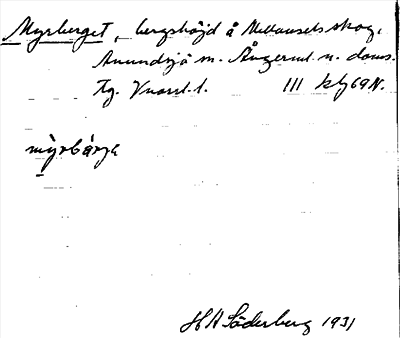 Myrberget, bergshöjd å Mellansels skog,
Anundsjö sn. Ångerml. n. doms.
Västernorrl. l. III kbg 69 N.
myrbärje
H A Söderberg 1931